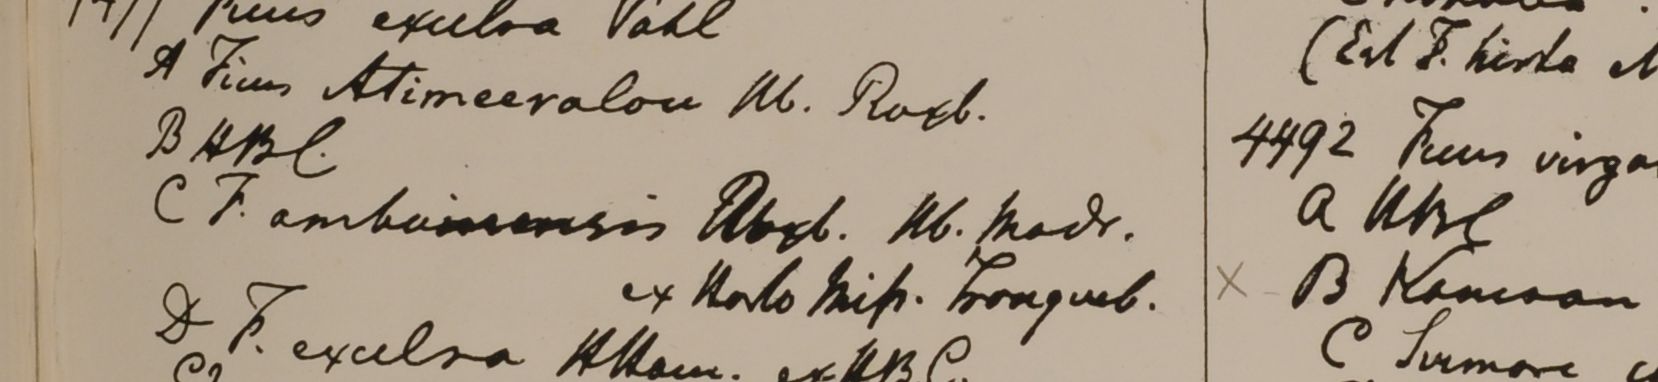 Ficus excelsa Vahl
A Ficus Atimeeralou Hb. Roxb.
B HBC.
C F. amboinensis Roxb. Hb. Madr.
ex Horto Miss. Tranqueb.
D F. excelsa HHam. ex HBC
(Est F. hirta
4492 Ficus
A HBC
B Kamaon
C